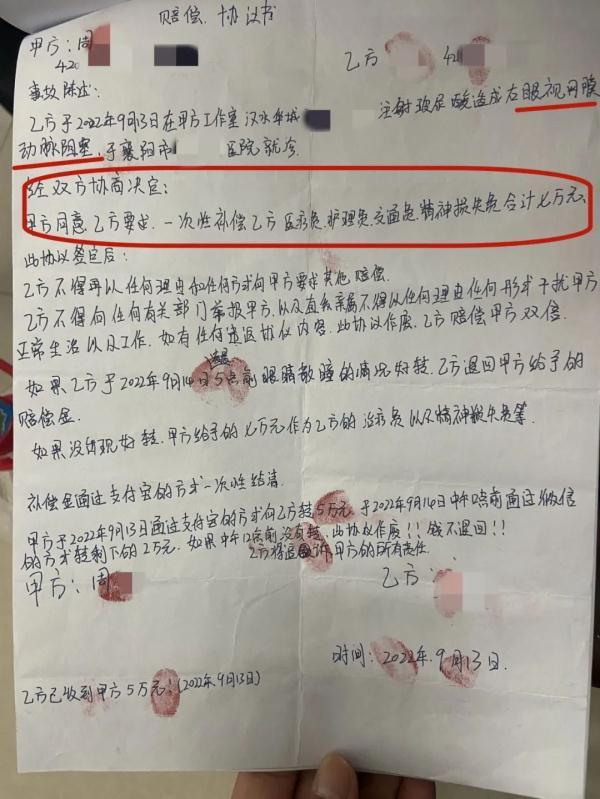 赔偿协议书
甲方:周
420
乙方 420
事故陈述:
乙方于2022年9月13日在甲方工作室汉水华城 注射玻尿酸造成左眼视网膜
动脉阻塞,于襄阳市 医院就诊
经双方协商决定:
甲方同意乙方要求.一次性补偿乙方医疗费,护理费,交通费,精神损失费合计七万元、
此协议签定后:
乙方不得再以任何理由和任何方式向甲方要求其他赔偿.
乙方不得向任何有关部门举报甲方,以及直系亲属不得以任何理由任何形式干扰甲方
正常生活以及工作.如有任何违返协议内容.此协议作废、乙方赔偿甲方双倍.
如果乙方于2022年9月14日5点前眼睛散瞳的情况好转、乙方退回甲方给予的
赔偿金.
如果没出现好转.甲方给予的七万元作为乙方的治疗费以及精神损失费等.
补偿金通过支付宝的方式一次性结清.
甲方于2022年9月13日通过支付宝的方式向乙方转5万元.于2022年9月14日中午12点前通过微信
的方式转剩下的2万元.如果中午12点前没有转,此协议作废!!钱不退回!!
乙方将追 甲方的所有责任.
甲方:周
乙方:
时间:2022年.9月13日.
乙方已收到甲方5万元:(2022年9月13日)